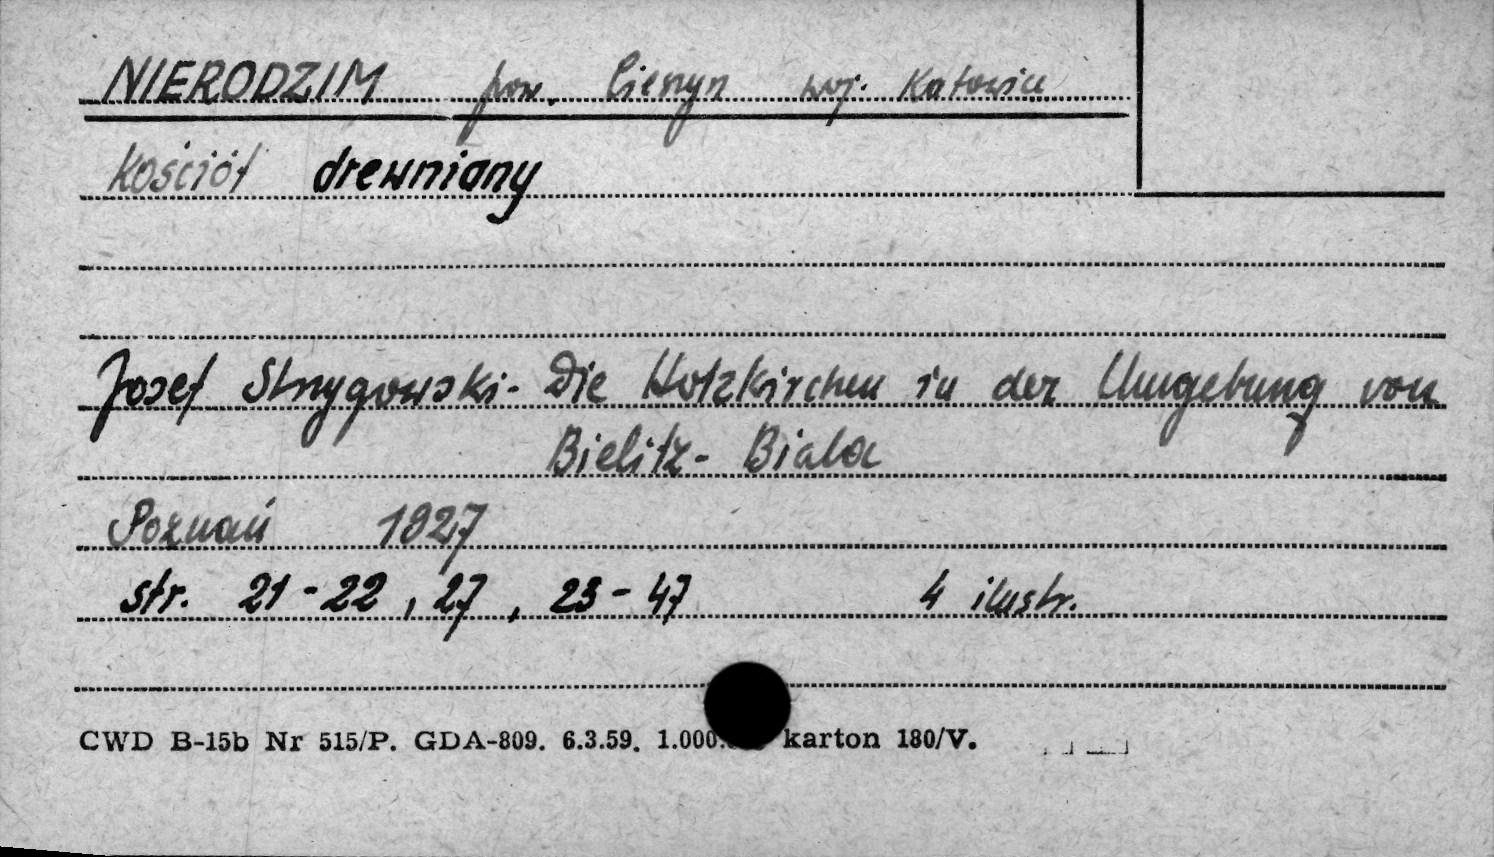 NIERODZIM pow. Cieszyn woj. Katowice
Kościół drewniany
Josef Strzygowski - Die Holzkirchen in der Umgebung von
Bielitz - Biala
Poznań 1927
str. 21-22, 27, 23-47 4 ilustr.
CWD B-15b Nr 515/P. GDA-809. 6.3.59. 1.000. karton 180/V.